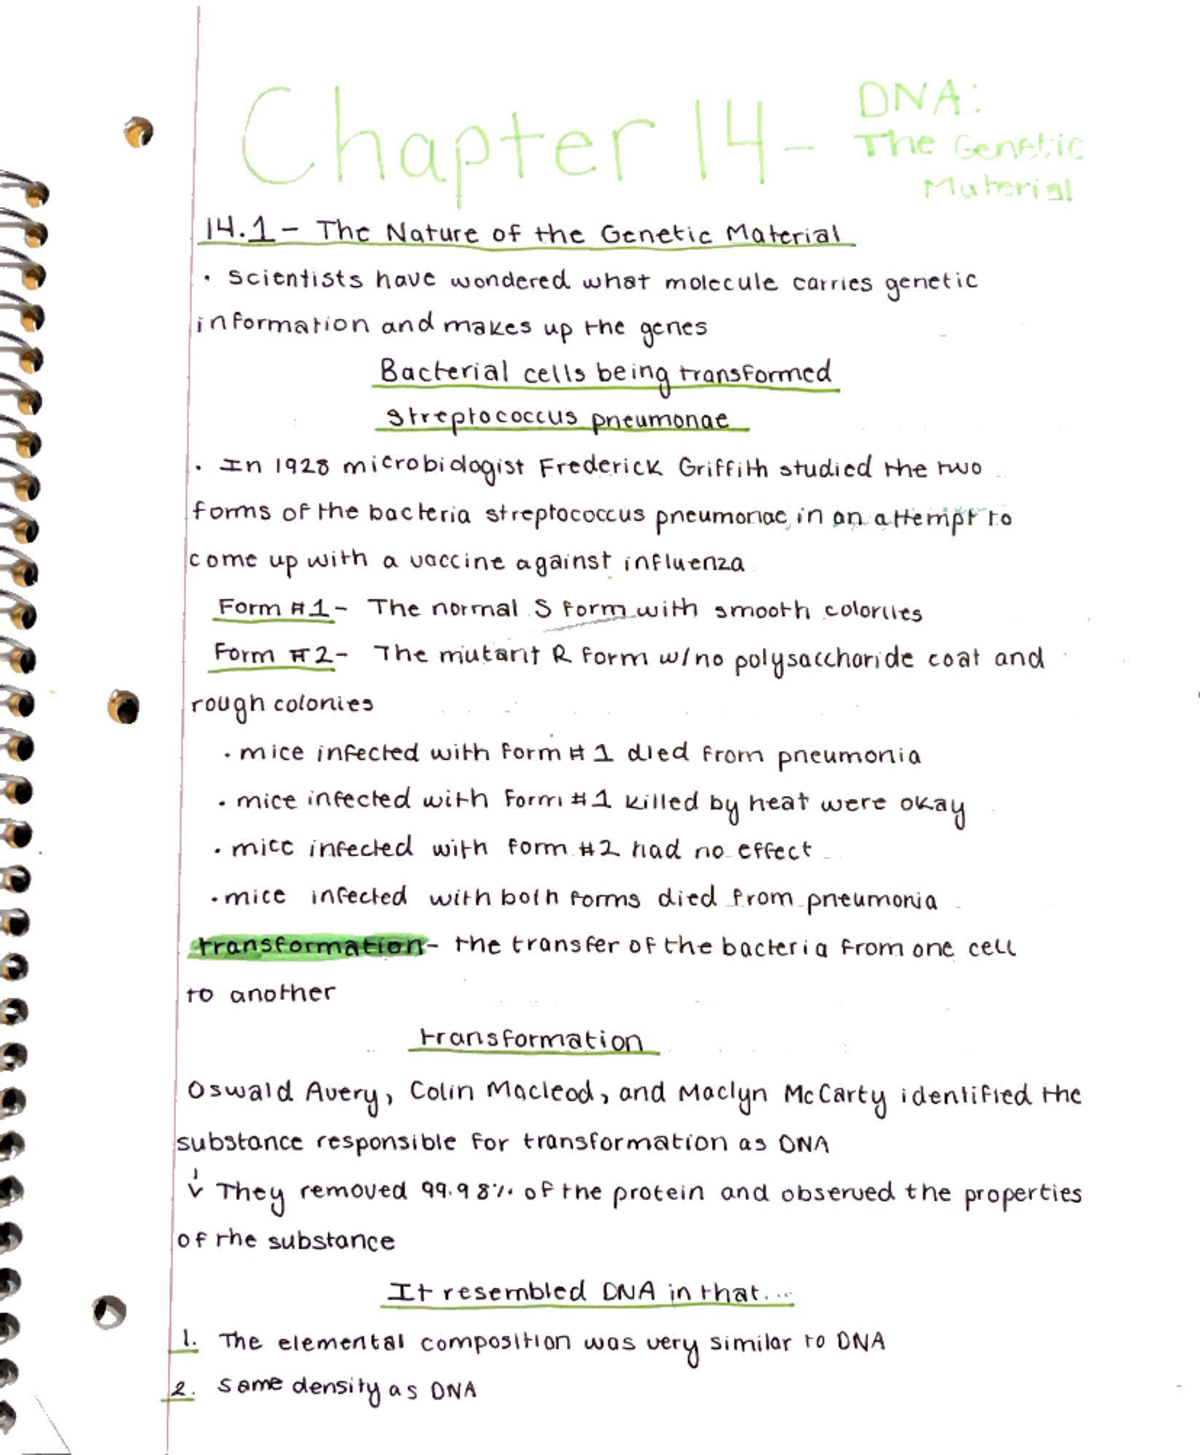 Chapter 14 -
DNA:
The Genetic
Material
14.1 - The Nature of the Genetic Material
· Scientists have wondered what molecule carries genetic
information and makes up the genes
Bacterial cells being transformed
Streptococcus pneumonae
· In 1928 microbiologist Frederick Griffith studied the two
forms of the bacteria streptococcus pneumonae in an attempt to
come up with a vaccine against influenza
Form #1 - The normal S form with smooth colonies
Form #2 - The mutant R form w/no polysaccharide coat and
rough colonies
· mice infected with form #1 died from pneumonia
· mice infected with form #1 killed by heat were okay
· mice infected with form #2 had no effect
· mice infected with both forms died from pneumonia
transformation - the transfer of the bacteria from one cell
to another
transformation
Oswald Avery, Colin Macleod, and Maclyn McCarty identified the
substance responsible for transformation as DNA
↓ They removed 99.98% of the protein and observed the properties
of the substance
It resembled DNA in that...
1. The elemental composition was very similar to DNA
2. Same density as DNA